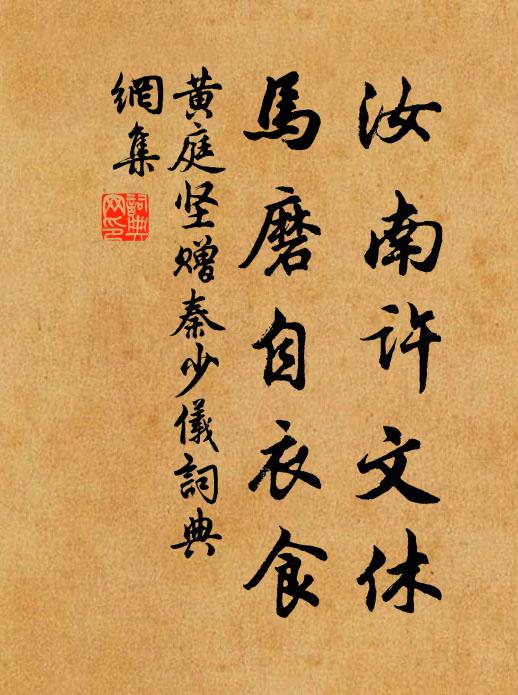 汝南許文休
馬磨自衣食
黄庭坚赠秦少儀詞典
網集
詞典网印